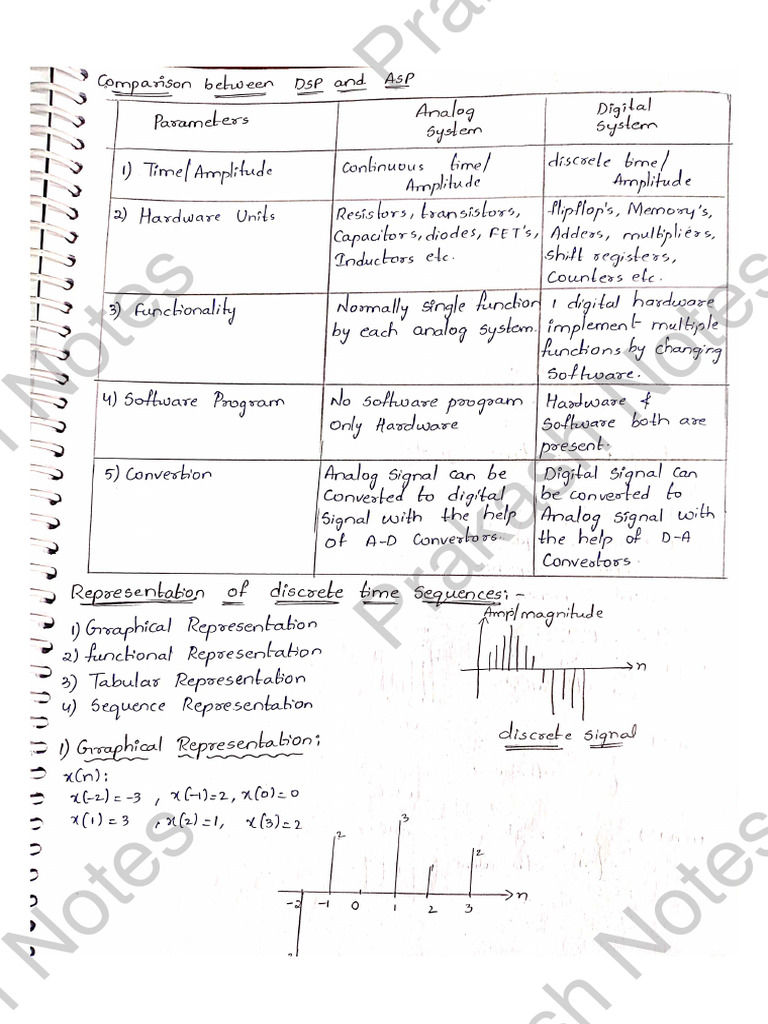 Comparison between DSP and ASP
Parameters
Analog
System
Digital
System
1) Time/Amplitude
Continuous time/
Amplitude
discrete time/
Amplitude
2) Hardware Units
Resistors, transistors,
Capacitors, diodes, FET's,
Inductors etc.
flipflop's, Memory's,
Adders, multipliers,
shift registers,
Counters etc.
3) Functionality
Normally single function
by each analog system.
1 digital hardware
implement multiple
functions by changing
Software.
4) Software Program
No software program
Only Hardware
Hardware &
Software both are
present.
5) Convertion
Analog Signal can be
Converted to digital
Signal with the help
of A-D Convertors.
Digital Signal Can
be converted to
Analog Signal with
the help of D-A
Convertors
Representation of discrete time Sequences:-
1) Graphical Representation
2) functional Representation
3) Tabular Representation
4) Sequence Representation
Amp/magnitude
n
discrete signal
1) Graphical Representation:
x(n):
x(-2)=-3, x(-1)=2, x(0)=0
x(1)=3, x(2)=1, x(3)=2
3
2
2
-2 -1 0 1 2 3 n
Prakash Notes